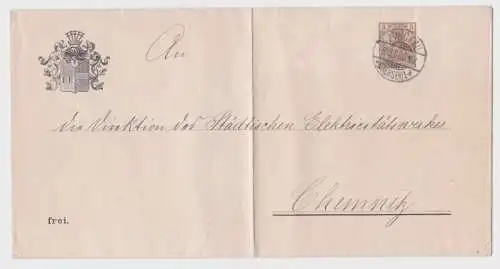 An
die Direktion des Städtischen Elektricitätswerkes
Chemnitz
frei.